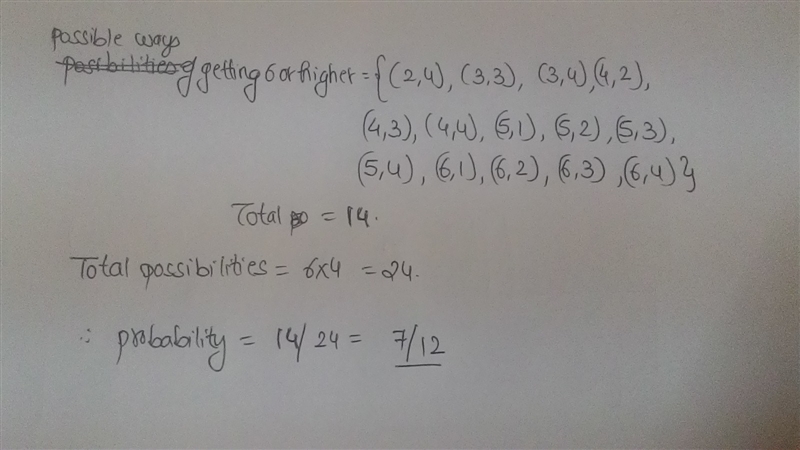 possible ways
possibilities of getting 6 or higher = {(2,4), (3,3), (3,4),(4,2),
(4,3), (4,4), (5,1), (5,2), (5,3),
(5,4), (6,1), (6,2), (6,3), (6,4)}
Total = 14.
Total possibilities = 6x4 = 24.
∴ probability = 14/24 = 7/12